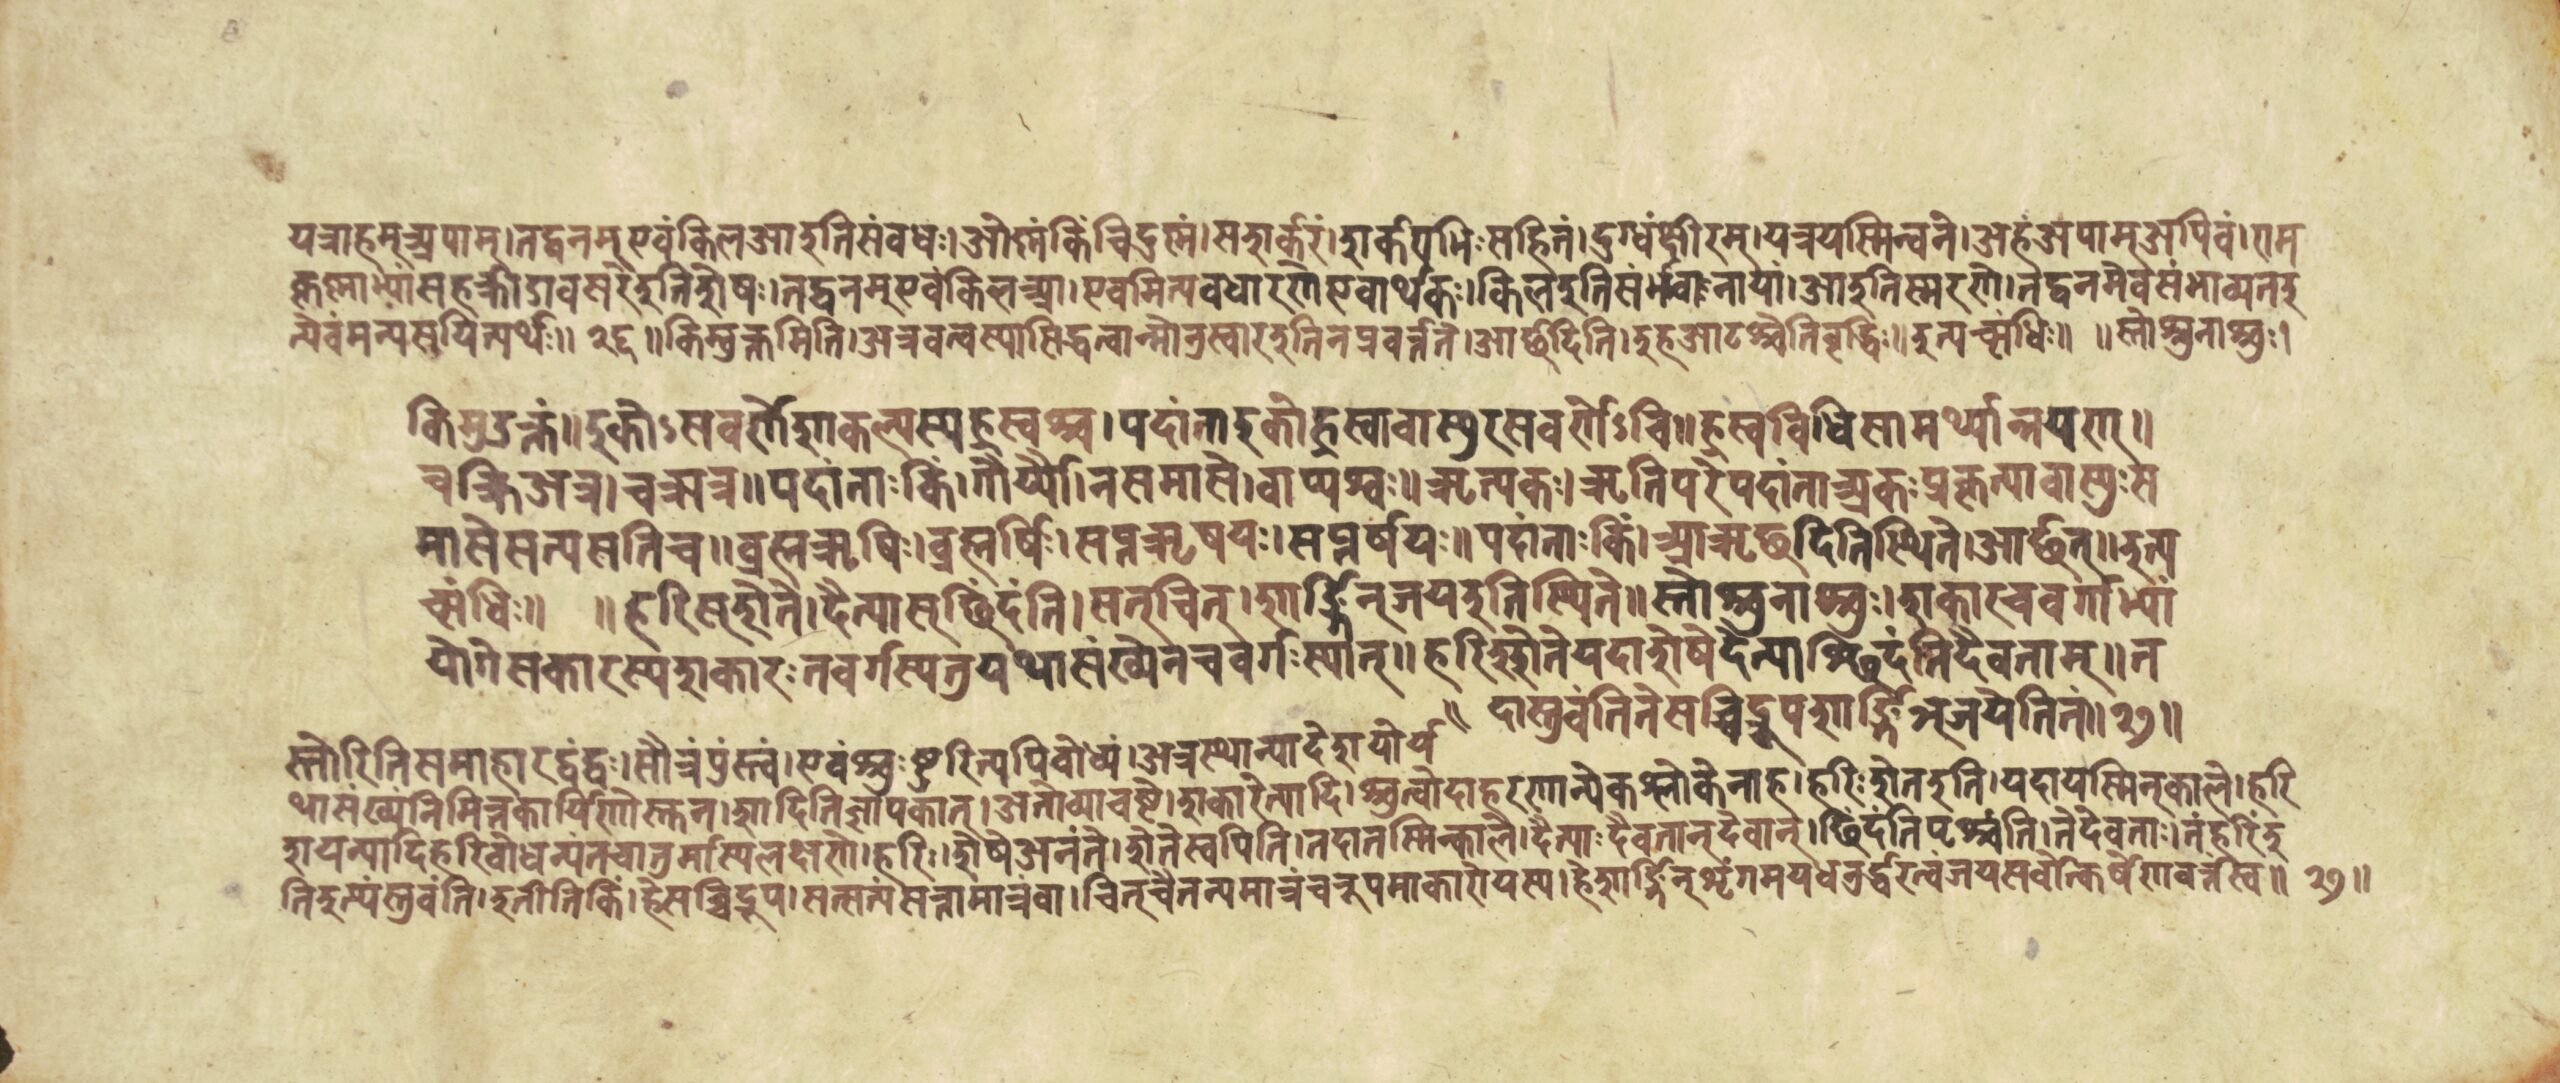 यत्राहमूअपाम्।तद्वनमूएवंकिलआइतिसंवधः।ओत्मंकिंचिद्रत्मं।सशर्करं।शर्कराभिःसहितं।दुग्धंक्षीरम्।यत्रयस्मिन्वने।अहंअपाम्अपिवं।राम
कृत्माभ्यांसहक्रीडावसरेइतिशेषः।तद्वनमूएवंकिलआ।एवमित्यवधारणेएवार्थकः।किलइतिसंर्भवाःनायां।आइतिस्मरणे।तद्वनमेवसंभाव्यतइ
त्येवंमन्यसयित्यर्थः॥२६॥किमुक्तमिति।अत्रवत्वस्यासिद्धत्वान्मोनुस्वारइतिनप्रवर्त्तते।आर्छदिति।इहआटश्चेतिवृद्धिः॥इत्यच्संधिः॥ ॥स्तोश्चुनाश्चुः।
किमुउक्तं॥इकोऽसवर्णेशाकल्यस्यह्रस्वश्च।पदांताइकोह्रस्वावास्युरसवर्णेऽचि॥ह्रस्वविधिसामर्थ्यान्नयण्॥
चक्रिअत्र।चक्र्यत्र॥पदांताःकिं।गौर्य्यौ।नसमासे।वाप्यश्वः॥ऋत्यकः।ऋतिपरेपदांताअकःप्रकृत्यावास्युःस
मासेसत्यसतिच॥व्रह्मऋषिः।व्रह्मर्षिः।सप्तऋषयः।सप्तर्षयः॥पदांताःकिं।आऋछदितिस्थिते।आर्छत्॥इत्य
च्संधिः॥ ॥हरिस्शेते।दैत्यास्छिंदंति।सत्चित्।शार्ङ्गिन्जयइतिस्थिते॥स्तोश्चुनाश्चुः।शकारचवर्गाभ्यां
योगेसकारस्यशकारःतवर्गस्यतुयथासंख्येनचवर्गःस्यात्॥हरिश्शेतेयदाशेषेदैत्याश्छिंदंतिदेवताम्॥त
॥ दास्तुवंतितेसच्चिद्रूपशार्ङ्गिञ्जयेतितं॥२७॥
स्तोरितिसमाहारद्वंद्वः।सौत्रंपुंस्त्वं।एवंश्चुःष्टुरित्यपिवोध्यं।अत्रस्थान्यादेशयोर्य
थासंख्यंनिमित्तकार्यिणोस्तन।शादितिज्ञापकात्।अतोव्याचष्टे।शकारेत्यादि।श्चुत्वोदाहरणान्येकश्लोकेनाह।हरिःशेतइति।यदायस्मिन्काले।हरि
शयन्यादिहरिवोधन्यंतचातुर्मास्यलक्षणे।हरिः।शेषेअनंते।शेतेस्वपिति।तदातस्मिन्काले।दैत्याःदेवतान्देवान्।छिंदंतिप्टश्चंति।तेदेवताः।तंहरिंइ
तिइत्यंस्तुवंति।इतीतिकिं।हेसच्चिद्रूप।सत्सत्यंसन्नामात्रंवा।चित्चैतन्यमात्रंचरूपमाकारोयस्य।हेशार्ङ्गिन्शृंगमयधनुर्द्धरत्वंजयसर्वोत्कर्षेणवर्त्तस्व॥२७॥